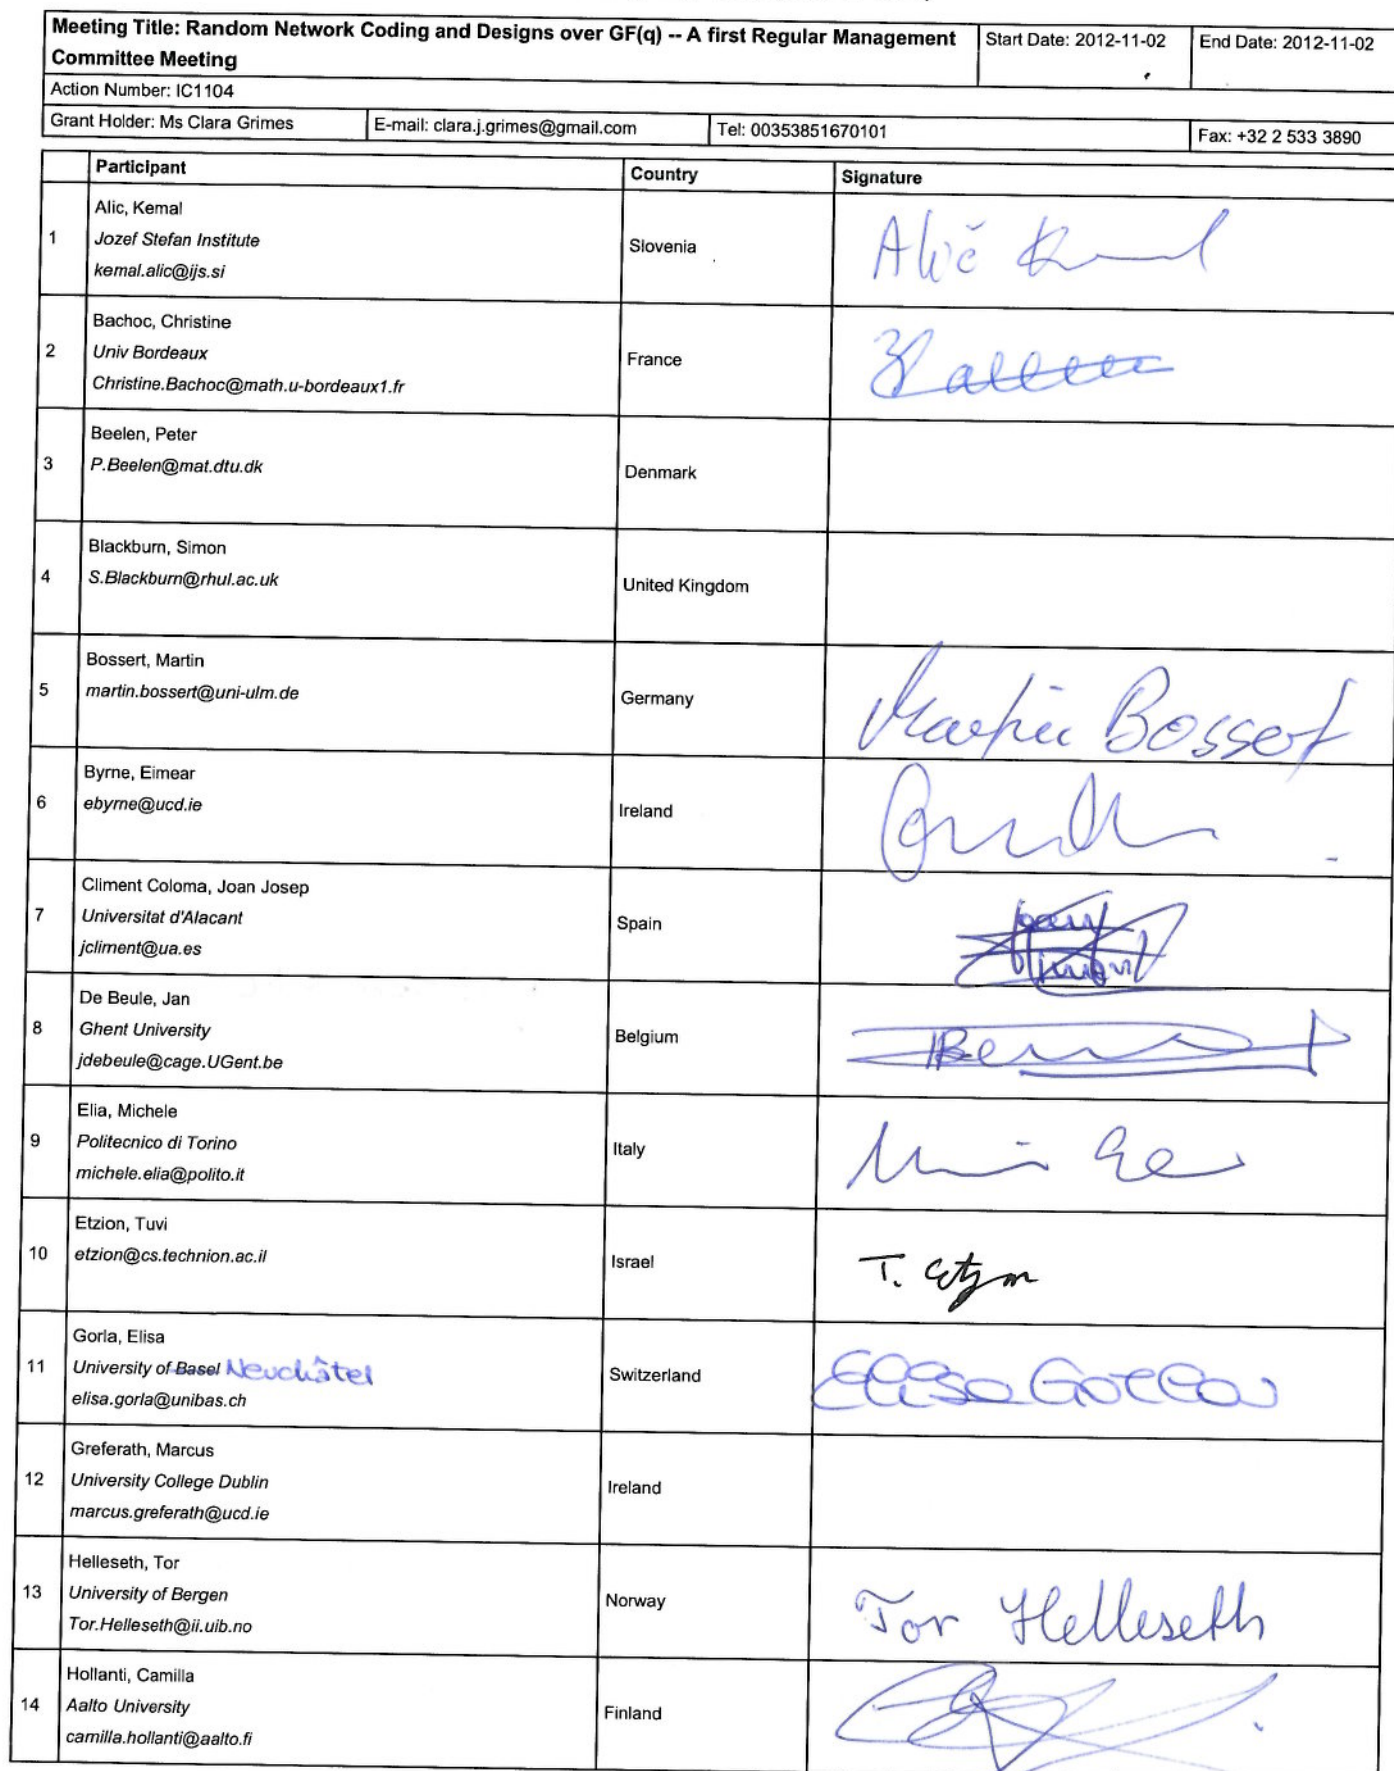 Meeting Title: Random Network Coding and Designs over GF(q) -- A first Regular Management
Committee Meeting
Start Date: 2012-11-02
End Date: 2012-11-02
Action Number: IC1104
Grant Holder: Ms Clara Grimes
E-mail: clara.j.grimes@gmail.com
Tel: 00353851670101
Fax: +32 2 533 3890
Participant
Country
Signature
1
Alic, Kemal
Jozef Stefan Institute
kemal.alic@ijs.si
Slovenia
Alič Kemal
2
Bachoc, Christine
Univ Bordeaux
Christine.Bachoc@math.u-bordeaux1.fr
France
3
Beelen, Peter
P.Beelen@mat.dtu.dk
Denmark
4
Blackburn, Simon
S.Blackburn@rhul.ac.uk
United Kingdom
5
Bossert, Martin
martin.bossert@uni-ulm.de
Germany
Martin Bossert
6
Byrne, Eimear
ebyrne@ucd.ie
Ireland
7
Climent Coloma, Joan Josep
Universitat d'Alacant
jcliment@ua.es
Spain
8
De Beule, Jan
Ghent University
jdebeule@cage.UGent.be
Belgium
9
Elia, Michele
Politecnico di Torino
michele.elia@polito.it
Italy
10
Etzion, Tuvi
etzion@cs.technion.ac.il
Israel
T. Etzion
11
Gorla, Elisa
University of Basel Neuchâtel
elisa.gorla@unibas.ch
Switzerland
Elisa Gorla
12
Greferath, Marcus
University College Dublin
marcus.greferath@ucd.ie
Ireland
13
Helleseth, Tor
University of Bergen
Tor.Helleseth@ii.uib.no
Norway
Tor Helleseth
14
Hollanti, Camilla
Aalto University
camilla.hollanti@aalto.fi
Finland